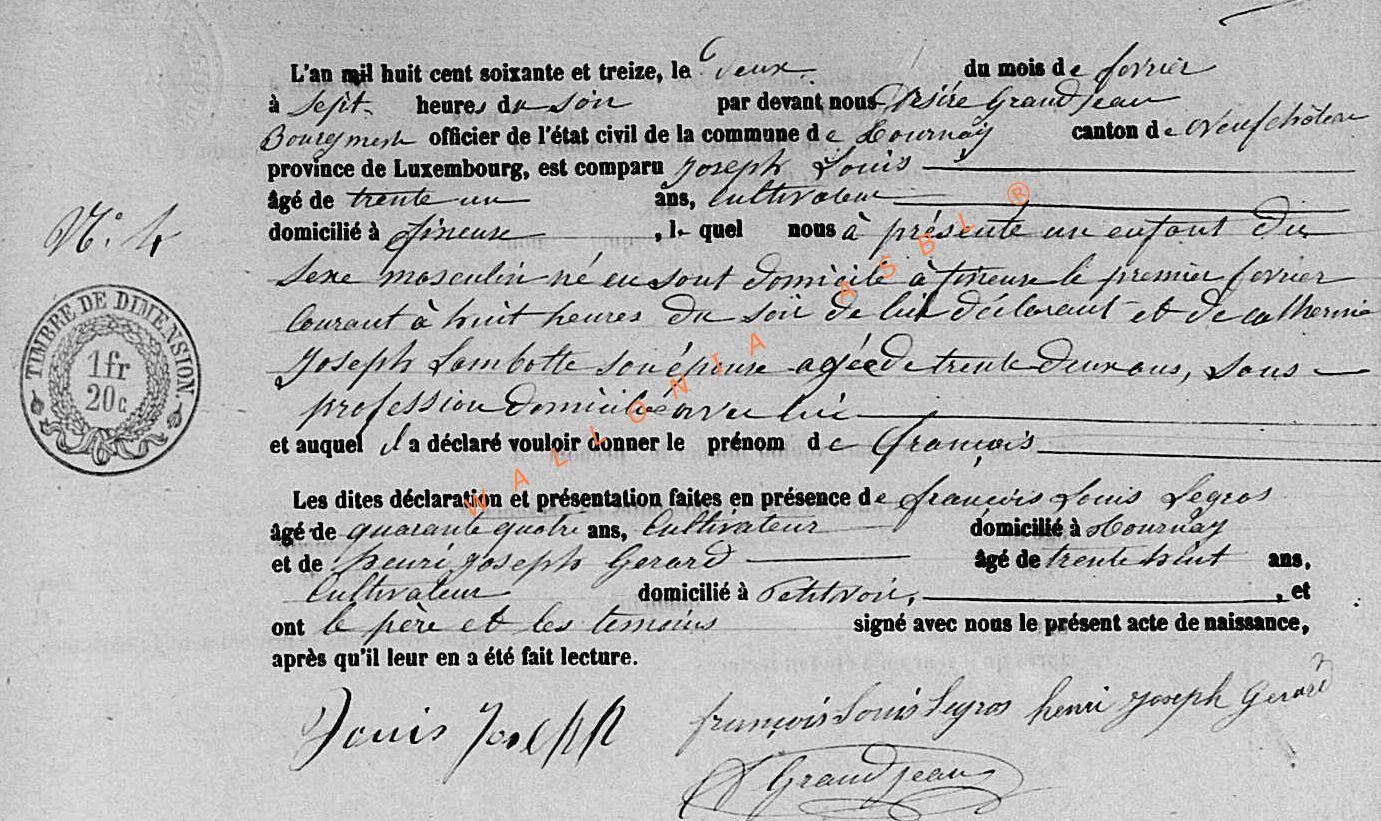 L'an mil huit cent soixante et treize, le Deux du mois de fevrier
à Sept heures du Soir par devant nous Désiré Grandjean
Bourgmestre officier de l'état civil de la commune de Tournay canton de Neufchâteau
province de Luxembourg, est comparu Joseph Louis
âgé de trente un ans, Cultivateur
domicilié à fineuse, le quel nous à présenté un enfant du
N° 4
Sexe masculin né en sont domicile à fineuse le premier fevrier
Courant à huit heures du Soir de lui déclarant et de catherine
Joseph Lambotte son épouse agée de trente Deux ans, Sans
profession domiciliée avec lui
et auquel il a déclaré vouloir donner le prénom de François
TIMBRE DE DIMENSION.
1 fr
20 c
Les dites déclaration et présentation faites en présence de françois Louis Legros
âgé de quarante quatre ans, Cultivateur domicilié à Tournay
et de henri joseph Gerard âgé de trente huit ans,
Cultivateur domicilié à Petitvoir, et
ont le père et les temoins signé avec nous le présent acte de naissance,
après qu'il leur en a été fait lecture.
Louis Joseph françois Louis Legros henri joseph Gerard
D Grandjean
WALLONIA ASBL ®